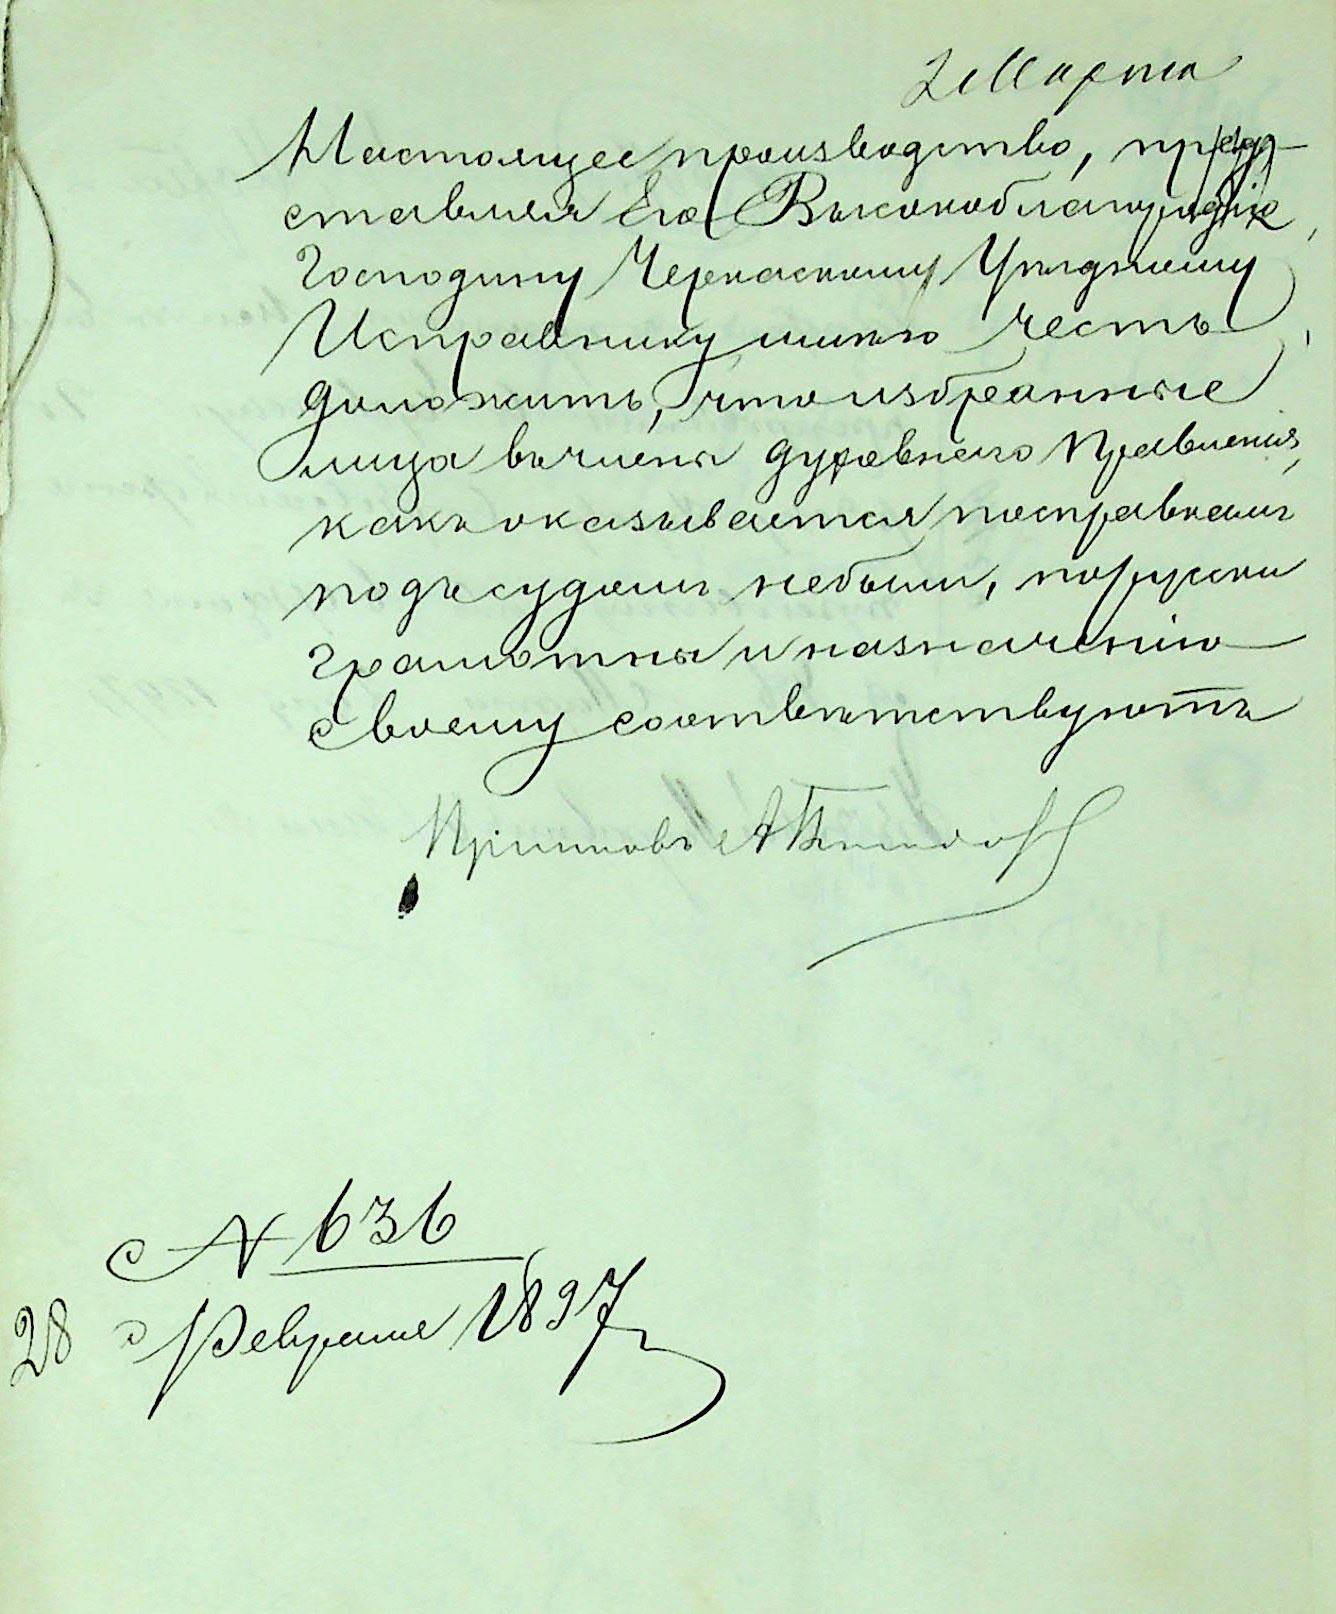 2 Марта
Настоящее производство, пред-
ставляя Его Высокоблагородію
Господину Черкаскому Уѣздному
Исправнику имѣю честь
доложить, что избранные
лица въ члены духовнаго Правления,
какъ оказывается по справкамъ
подъ судомъ небыли, по русски
грамотны и назначенію
своему соотвѣтствуютъ
Приставъ
№ 636
28 Февраля 1897